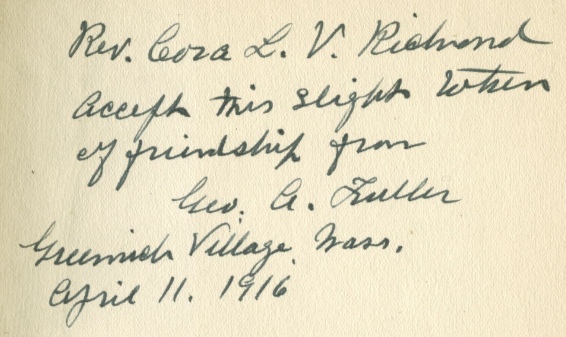 Rev. Cora L. V. Richmond
Accept this slight token
of friendship from
Geo. A. Fuller
Greenwich Village, Mass.
April 11. 1916